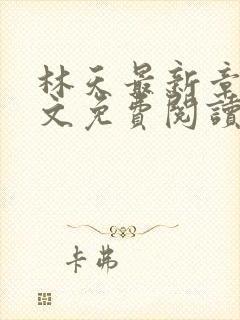 林天最新章
文免費閱讀
卡弗